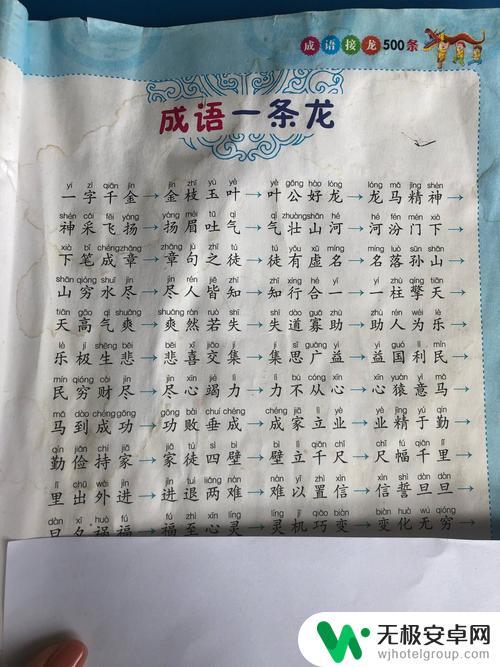 成语接龙500条
成语一条龙
yí zì qiān jīn jīn zhī yù yè yè gōng hào lóng lóng mǎ jīng shén
一字千金→金枝玉叶→叶公好龙→龙马精神→
shén cǎi fēi yáng yáng méi tǔ qì qì zhuàng shān hé hé fén mén xià
神采飞扬→扬眉吐气→气壮山河→河汾门下→
xià bǐ chéng zhāng zhāng jù zhī tú tú yǒu xū míng míng luò sūn shān
下笔成章→章句之徒→徒有虚名→名落孙山→
shān qióng shuǐ jìn jìn rén jiē zhī zhī xíng hé yī yí zhù qíng tiān
山穷水尽→尽人皆知→知行合一→一柱擎天→
tiān gāo qì shuǎng shuǎng rán ruò shī shī dào guǎ zhù zhù rén wéi lè
天高气爽→爽然若失→失道寡助→助人为乐→
lè jí shēng bēi bēi xǐ jiāo jí jí sī guǎng yì yì guó lì mín
乐极生悲→悲喜交集→集思广益→益国利民→
mín qióng cái jìn jìn xīn jié lì lì bù cóng xīn xīn yuán yì mǎ
民穷财尽→尽心竭力→力不从心→心猿意马→
mǎ dào chéng gōng gōng bài chuí chéng chéng jiā lì yè yè jīng yú qín
马到成功→功败垂成→成家立业→业精于勤→
qín jiǎn chí jiā jiā tú sì bì bì lì qiān chǐ chǐ fú qiān lǐ
勤俭持家→家徒四壁→壁立千尺→尺幅千里→
lǐ chū wài jìn jìn tuì liǎng nán nán yǐ zhì xìn xìn shì dàn dàn
里出外进→进退两难→难以置信→信誓旦旦→
dàn xī huò fú fú zhì xīn líng líng jī qiǎo biàn biàn huà wú qióng
旦夕祸福→福至心灵→灵机巧变→变化无穷→
无极安卓网
wjhotelgroup.com